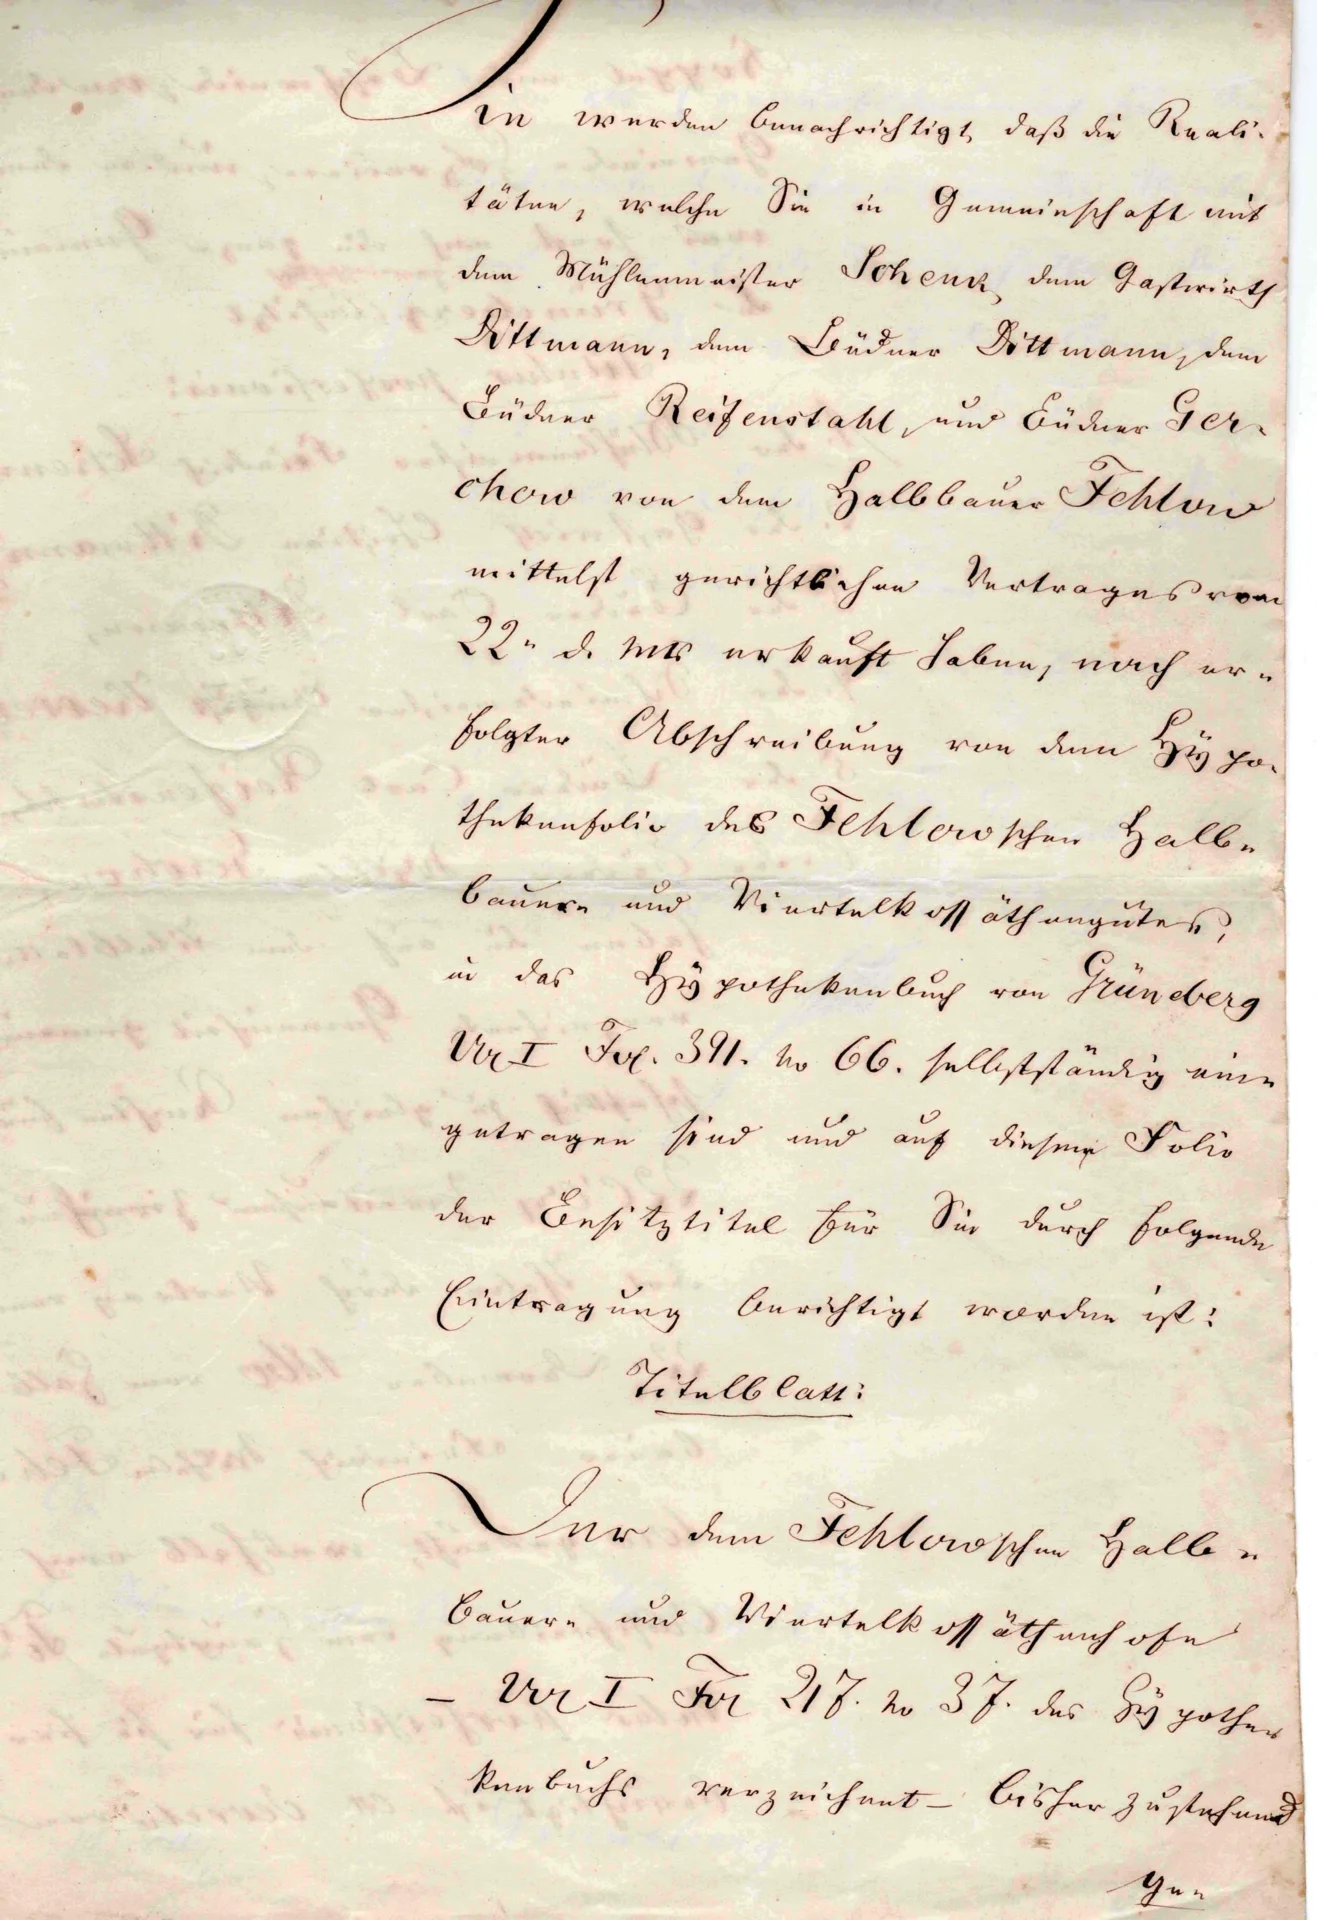 Sie werden benachrichtigt, daß die Reali-
täten, welche Sie in Gemeinschaft mit
dem Mühlenmeister Schenk, dem Gastwirth
Dittmann, dem Büdner Dittmann, dem
Büdner Reifenstahl, und Büdner Ger-
chow von dem Halbbauer Fehlow
mittelst gerichtlichen Vertrages vom
22n d. Mts erkauft haben, nach er-
folgter Abschreibung von dem Hypo-
thekenfolio des Fehlowschen Halb-
bauer- und Viertelkossäthengutes,
in das Hypothekenbuch von Grüneberg
Vol I Fol. 391. No 66. selbstständig ein-
getragen sind und auf diesem Folio
der Besitztitel für Sie durch folgende
Eintragung berichtigt worden ist:
Titelblatt:
Der dem Fehlowschen Halb-
bauer- und Viertelkossäthenhofe
– Vol I Fol 217. No 37. des Hypothe-
kenbuchs verzeichnet – bisher zustehend
ge-